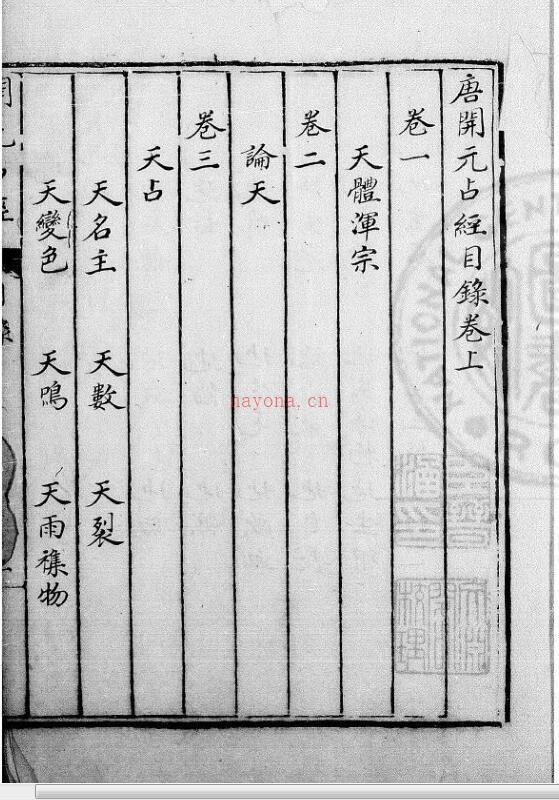 唐開元占經目錄卷上
卷一
天體渾宗
卷二
論天
卷三
天占
天名主　天數　天裂
天變色　天鳴　天雨襍物
nayona.cn